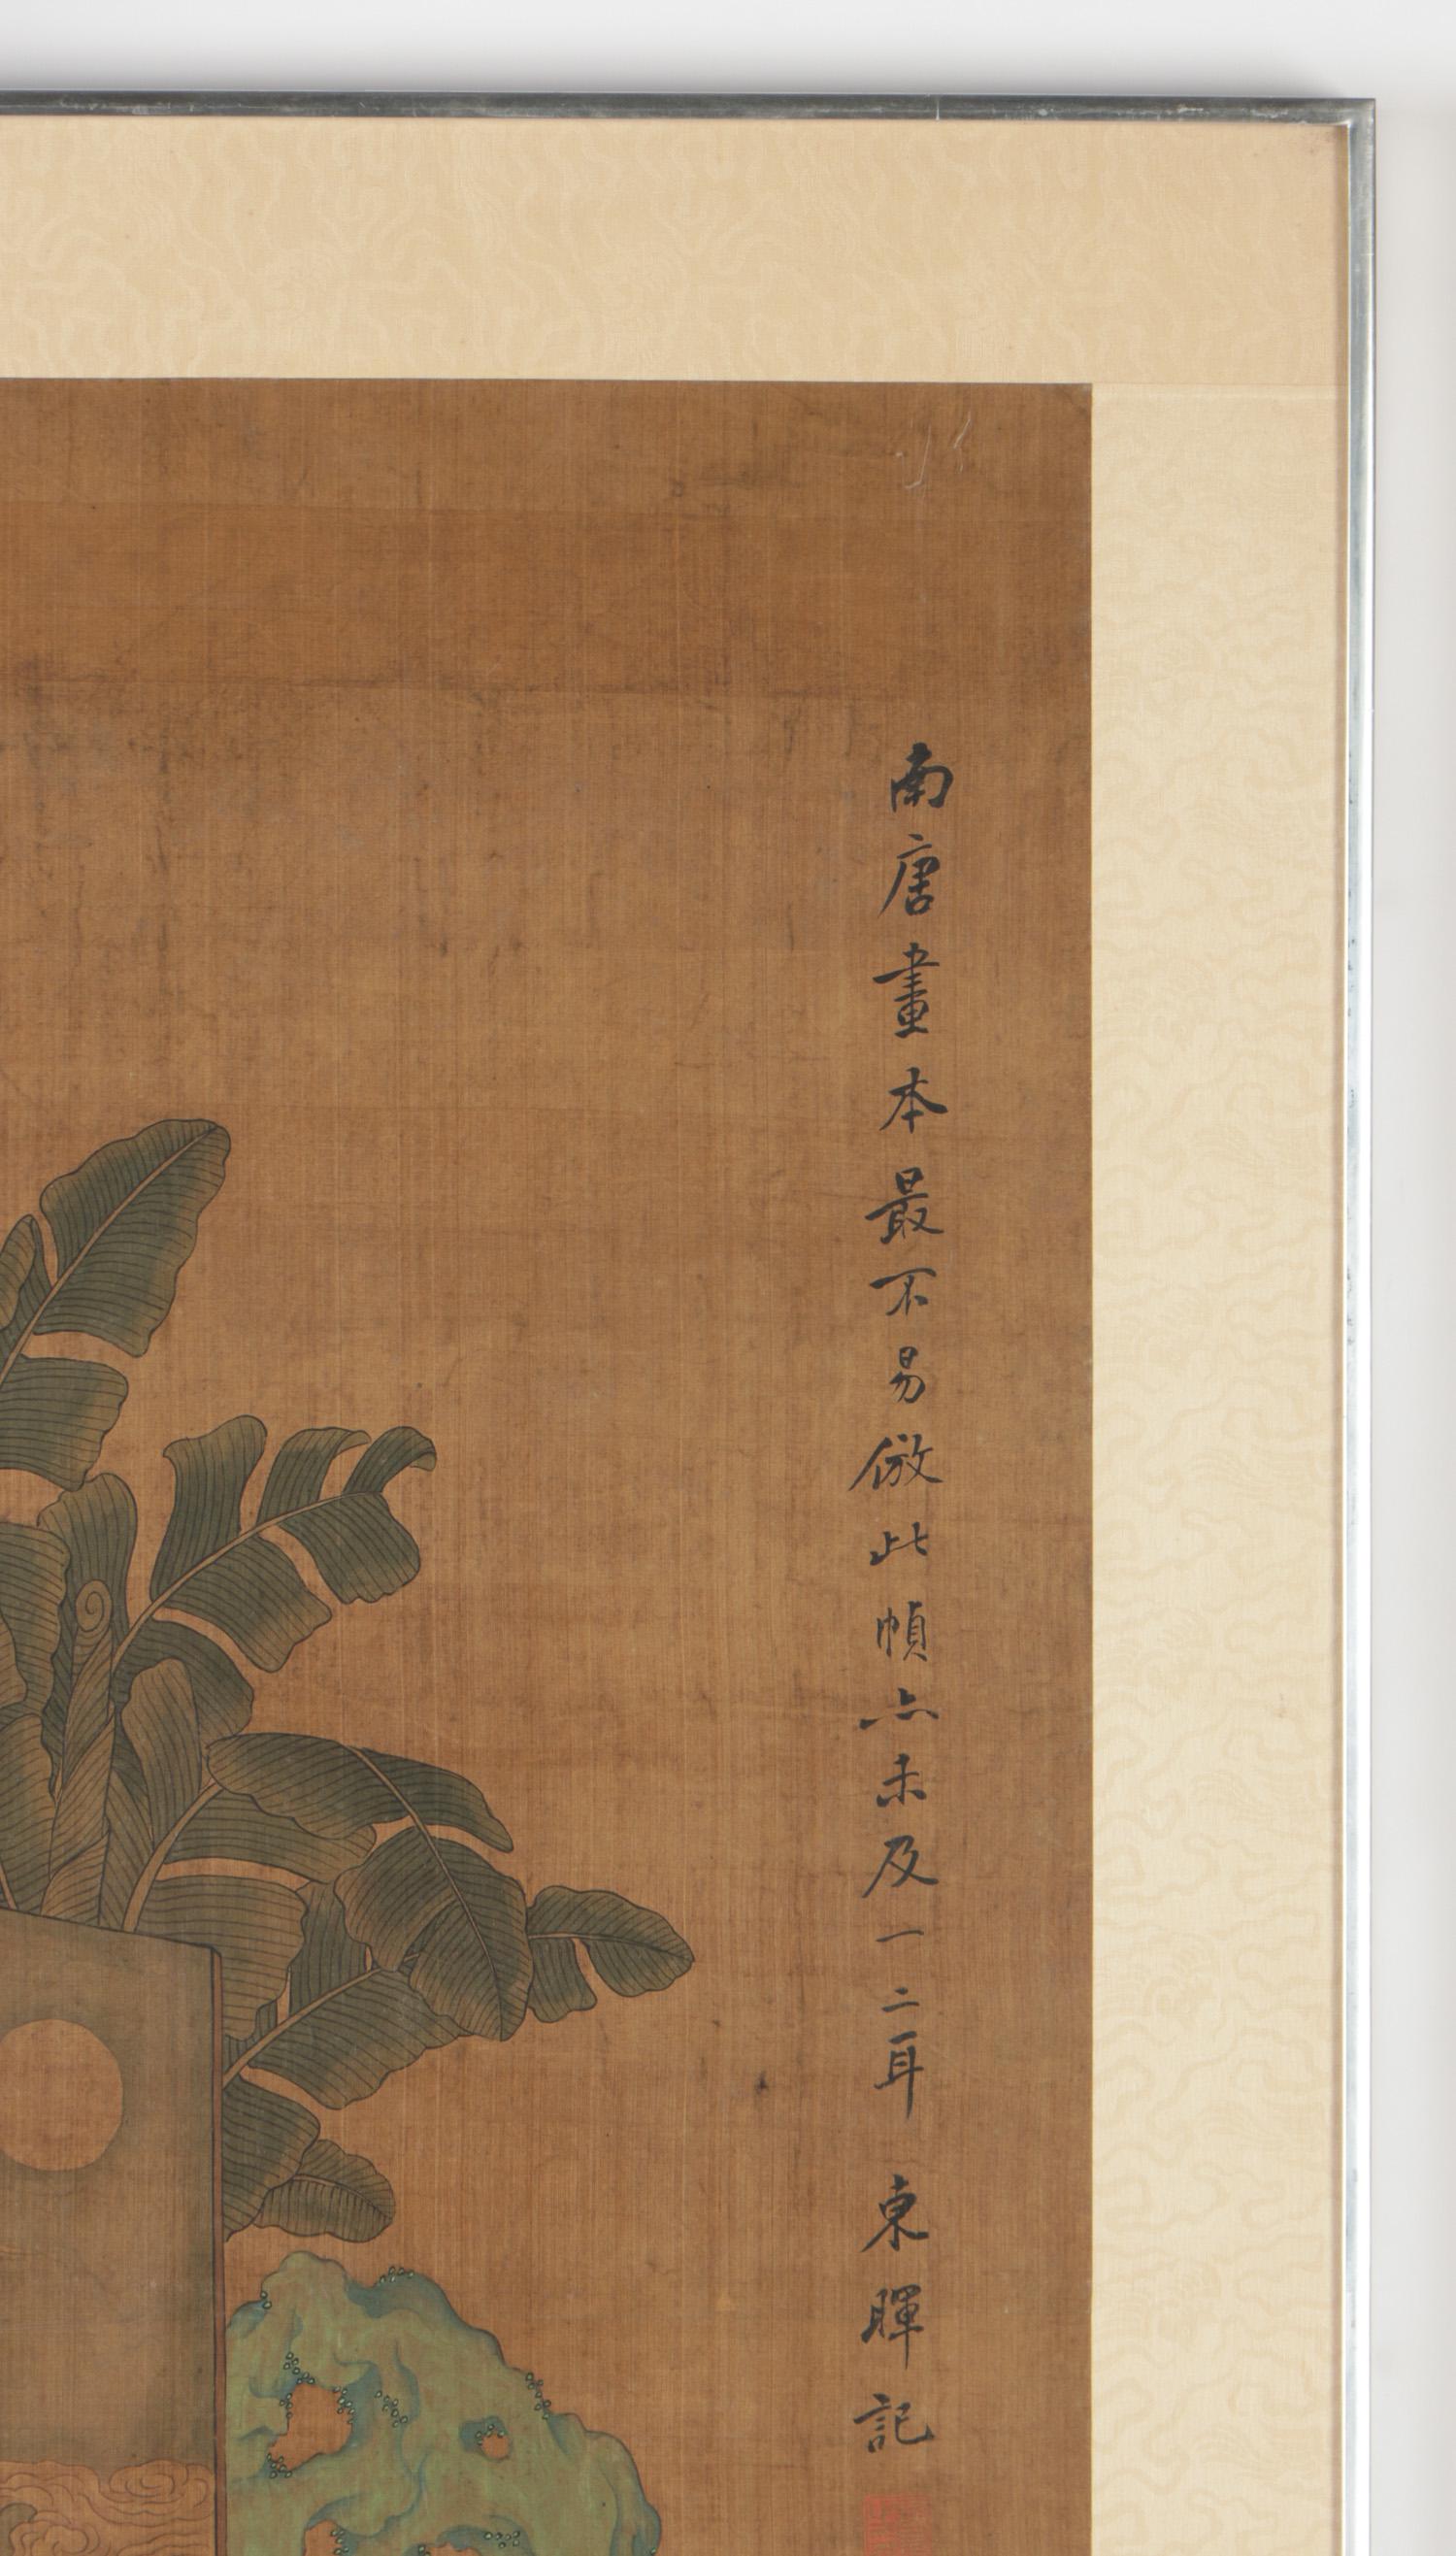 南唐畫本最不易倣此幀亦未及一二耳 東暉記